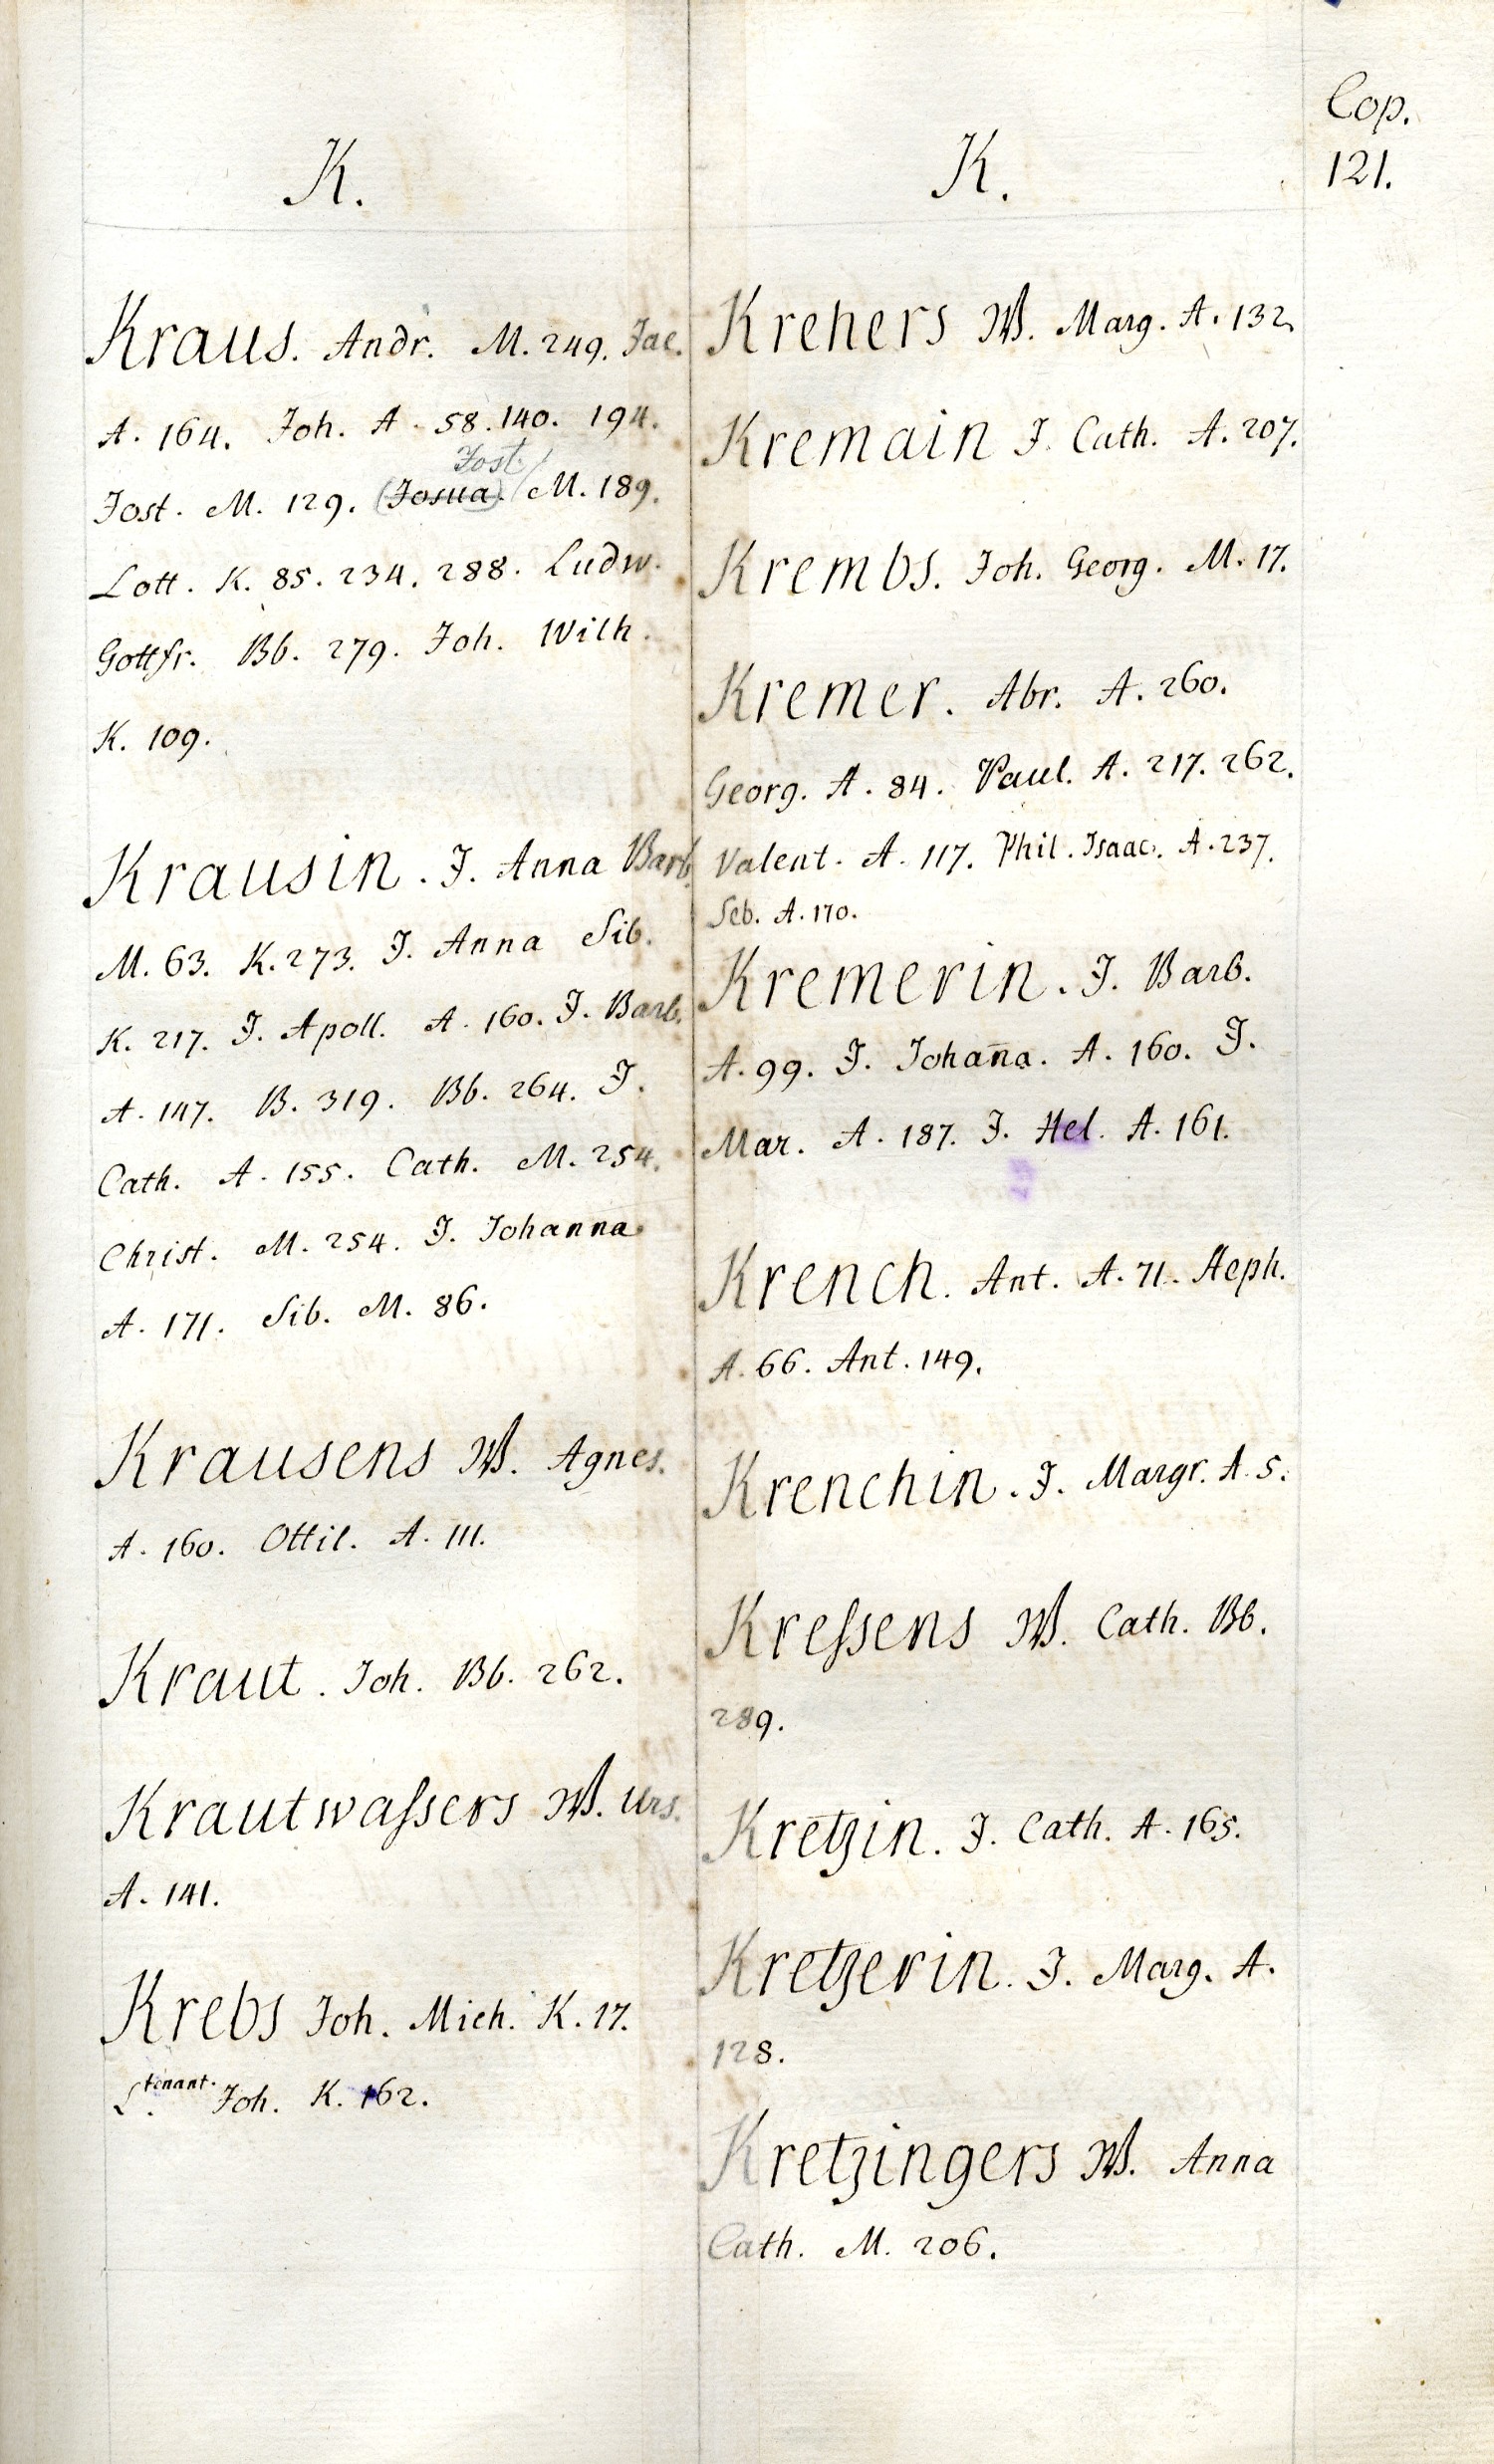 Cop.
121.
K.
Kraus. Andr. M. 249. Jac.
A. 164. Joh. A. 58. 140. 194.
Jost.
Jost. M. 129. (Josua). M. 189.
Lott. K. 85. 234. 288. Ludw.
Gottfr. Bb. 279. Joh. Wilh.
K. 109.
Krausin. J. Anna Barb.
M. 63. K. 273. J. Anna Sib.
K. 217. J. Apoll. A. 160. J. Barb.
A. 147. B. 319. Bb. 264. J.
Cath. A. 155. Cath. M. 254.
Christ. M. 254. J. Johanna
A. 171. Sib. M. 86.
Krausens W. Agnes.
A. 160. Ottil. A. 111.
Kraut. Joh. Bb. 262.
Krautwaſsers W. Urs.
A. 141.
Krebs Joh. Mich. K. 17.
L.tenant. Joh. K. 162.
K.
Krehers W. Marg. A. 132.
Kremain J. Cath. A. 207.
Krembs. Joh. Georg. M. 17.
Kremer. Abr. A. 260.
Georg. A. 84. Paul. A. 217. 262.
Valent. A. 117. Phil. Isaac. A. 237.
Seb. A. 170.
Kremerin. J. Barb.
A. 99. J. Johan̄a. A. 160. J.
Mar. A. 187. J. Hel. A. 161.
Krench. Ant. A. 71. Steph.
A. 66. Ant. 149.
Krenchin. J. Margr. A. 5.
Kreſsens W. Cath. Bb.
289.
Kretzin. J. Cath. A. 165.
Kretzerin. J. Marg. A.
128.
Kretzingers W. Anna
Cath. M. 206.